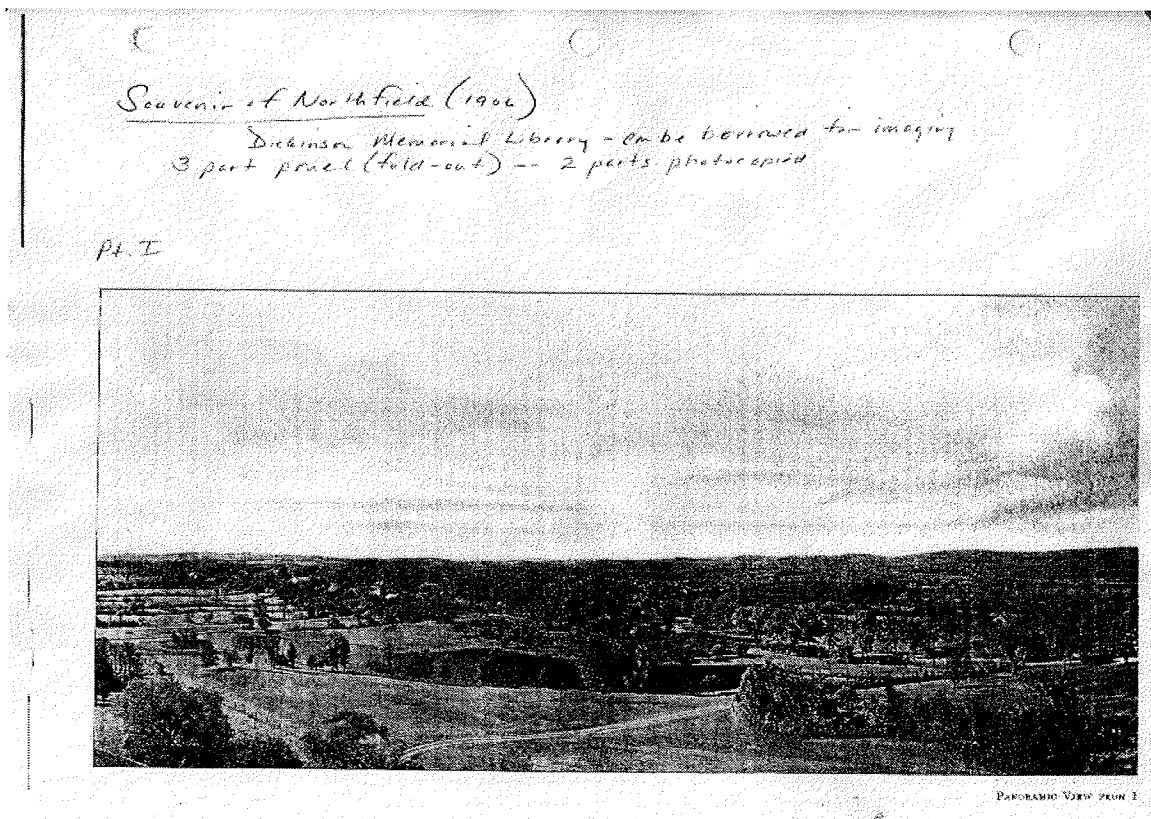 Souvenir of Northfield (1906)
Dickinson Memorial Library - can be borrowed for imaging
3 part panel (fold-out) -- 2 parts photocopied
Pt. I
PANORAMIC VIEW FROM